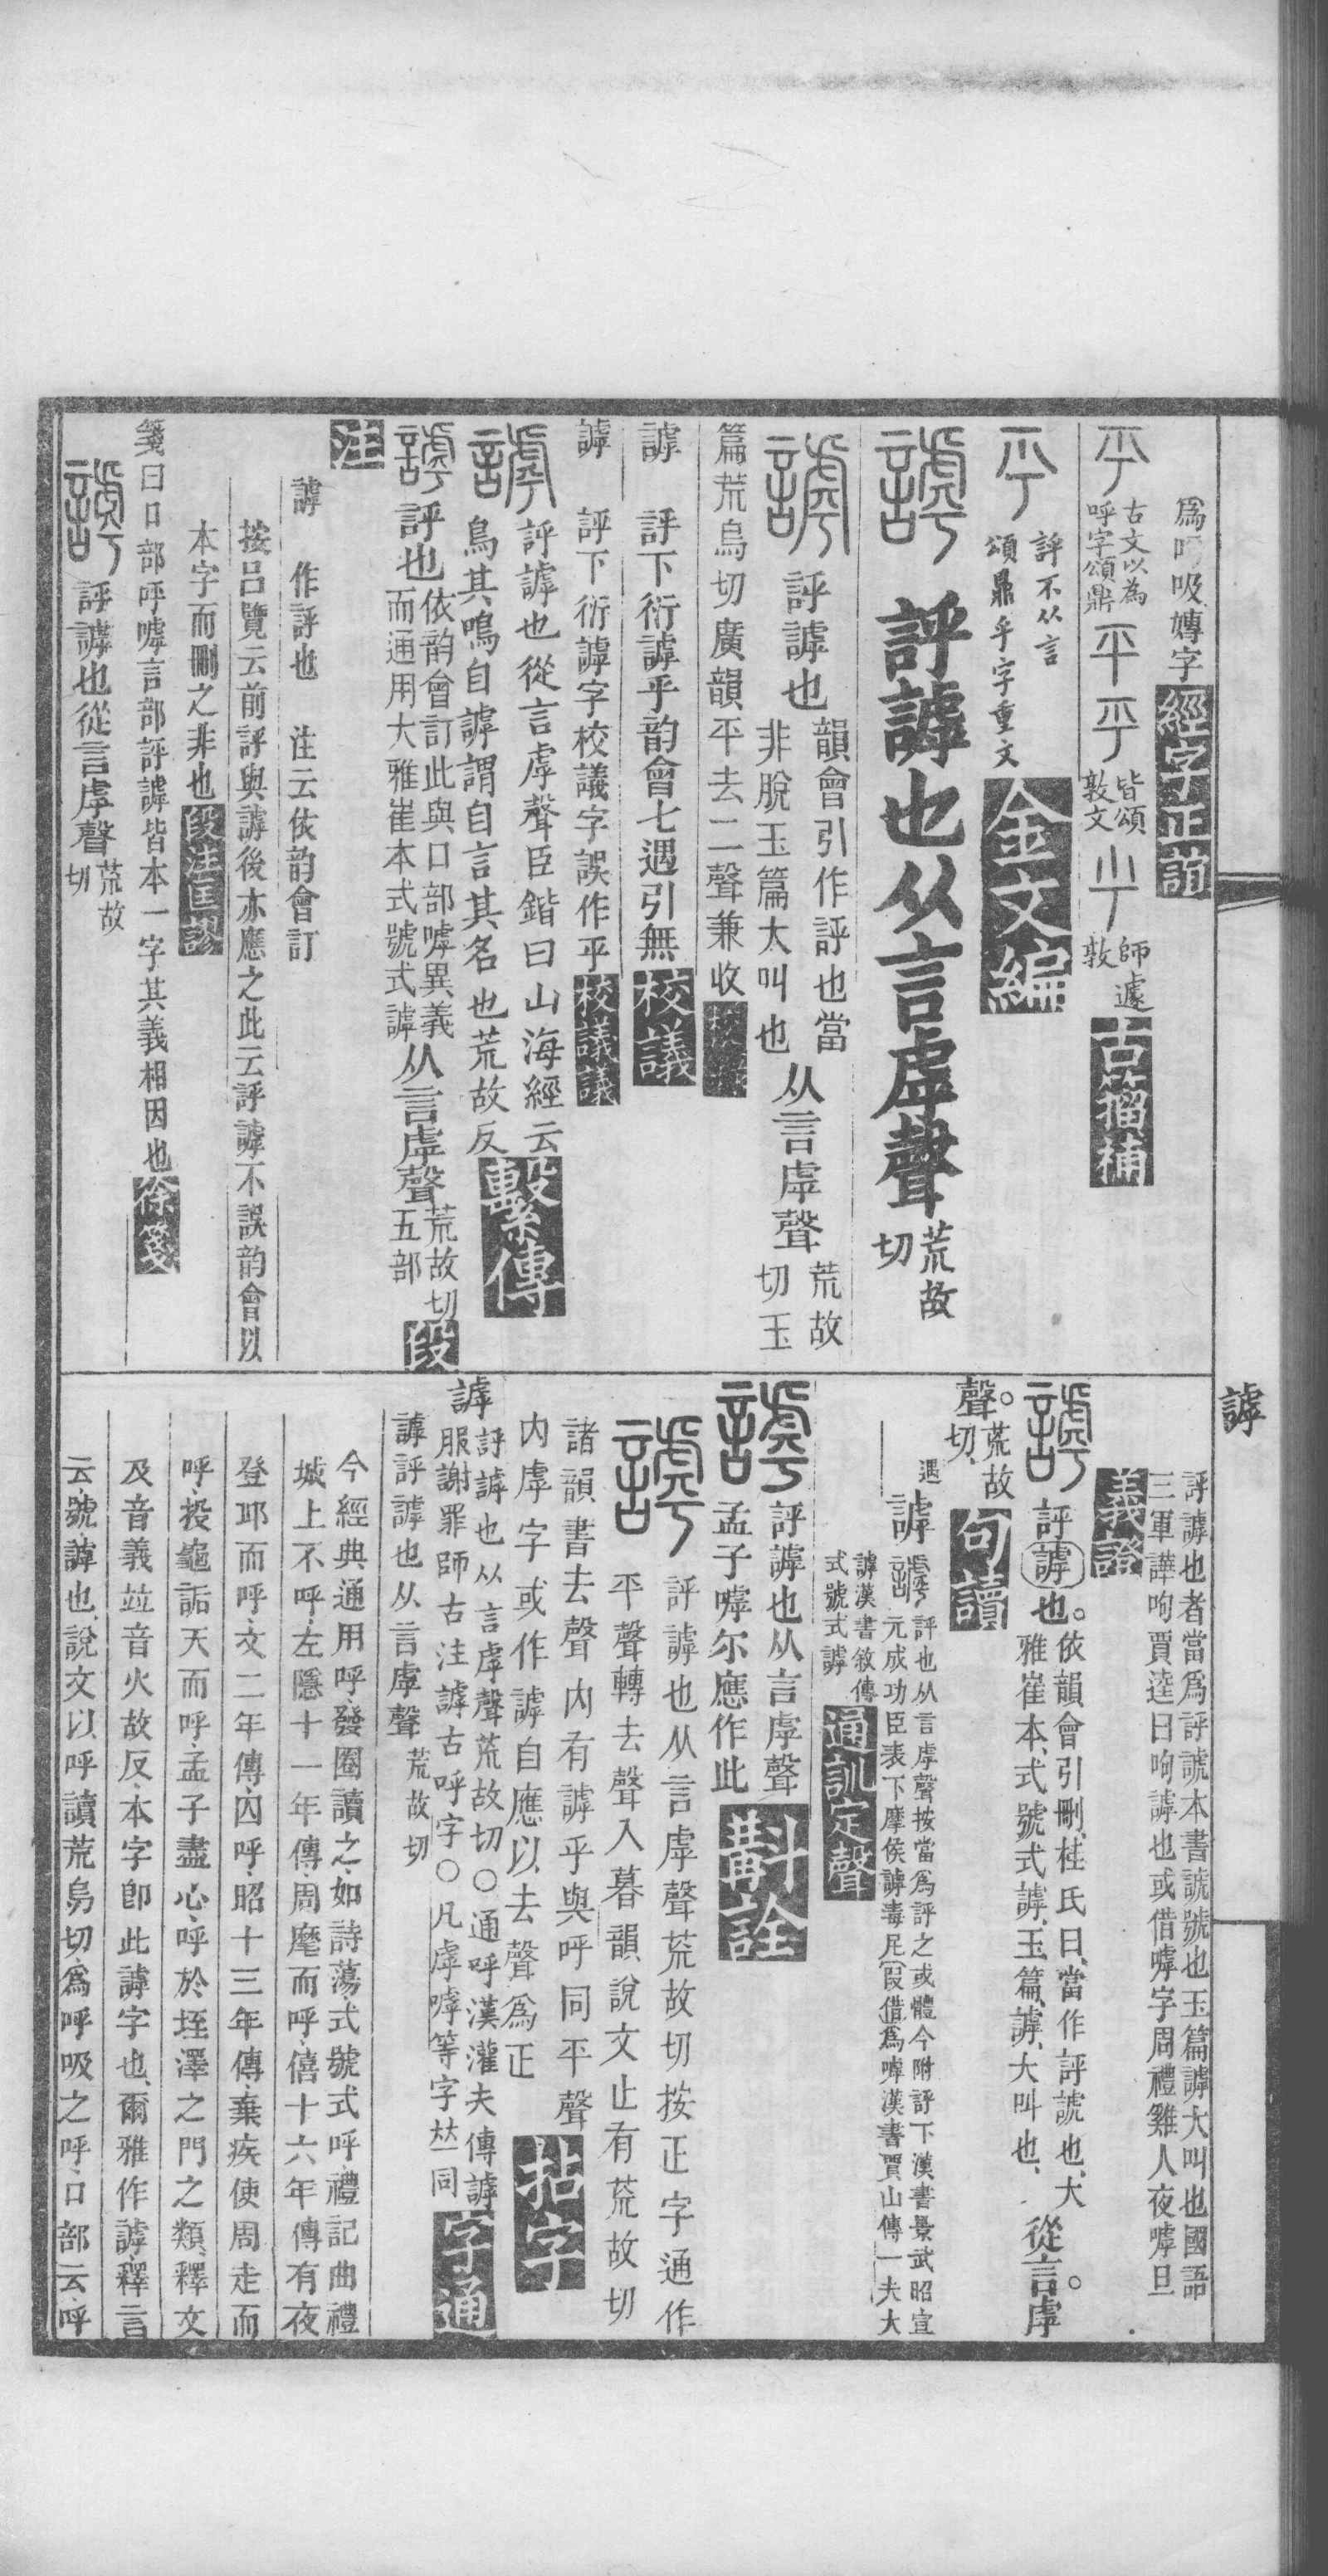 爲呼吸嫥字經字正誼
古文以為
呼字頌鼎
皆頌
敦文
師遽
敦
古籀補
評不从言
頌鼎乎字重文
金文編
評謼也从言虖聲荒故
切
評謼也
韻會引作評也當
非脫玉篇大叫也
从言虖聲
荒故
切玉
篇荒烏切廣韻平去二聲兼收
謼 評下衍謼乎韵會七遇引無校議
謼 評下衍謼字校議字誤作乎校議議
評謼也從言虖聲臣鍇曰山海經云
鳥其鳴自謼謂自言其名也荒故反
繫傳
評也
依韵會訂此與口部嘑異義
而通用大雅崔本式號式謼
从言虖聲
荒故切
五部
段
注
謼 作評也 注云依韵會訂
按呂覽云前評與謼後亦應之此云評謼不誤韵會以
本字而刪之非也段注匡謬
箋曰口部呼嘑言部評謼皆本一字其義相因也徐箋
評謼也從言虖聲
荒故
切
謼
評謼也者當爲評諕本書諕號也玉篇謼大叫也國語
三軍譁呴賈逵曰呴謼也或借嘑字周禮雞人夜嘑旦
義證
評謼也。
依韻會引刪、桂氏曰、當作評諕也、大
雅崔本、式號式謼、玉篇、謼、大叫也、
從言虖
聲。
荒故
切、
句讀
遇
謼
評也从言虖聲按當爲評之或體今附評下漢書景武昭宣
元成功臣表下摩侯謼毒尼叚借爲嘑漢書賈山傳一夫大
謼漢書敘傳
式號式謼
通訓定聲
評謼也从言虖聲
孟子嘑尔應作此
斠詮
評謼也从言虖聲荒故切按正字通作
平聲轉去聲入暮韻說文止有荒故切
諸韻書去聲內有謼乎與呼同平聲
內虖字或作謼自應以去聲爲正
拈字
謼
評謼也从言虖聲荒故切○通呼漢灌夫傳謼
服謝罪師古注謼古呼字○凡虖嘑等字𠀤同
字通
謼評謼也从言虖聲
荒故切
今經典通用呼、發圈讀之、如詩蕩、式號式呼、禮記曲禮
城上不呼、左隱十一年傳、周麾而呼、僖十六年傳有夜
登邱而呼、文二年傳、囚呼、昭十三年傳、棄疾使周走而
呼、投龜詬天而呼、孟子盡心、呼於垤澤之門之類、釋文
及音義竝音火故反、本字卽此謼字也、爾雅作謼、釋言
云、號謼也、說文以呼讀荒烏切、爲呼吸之呼、口部云、呼